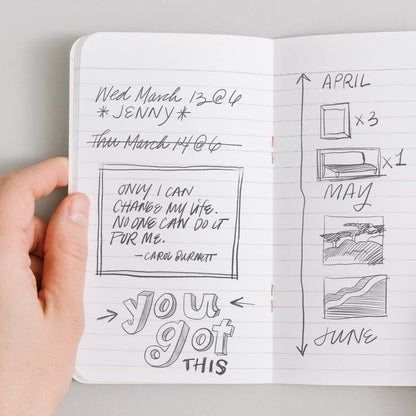 Wed March 13 @ 6
*JENNY*
Thu March 14 @ 6
ONLY I CAN
CHANGE MY LIFE.
NO ONE CAN DO IT
FOR ME.
—CAROL BURNETT
you
got
THIS
APRIL
x3
x1
MAY
JUNE